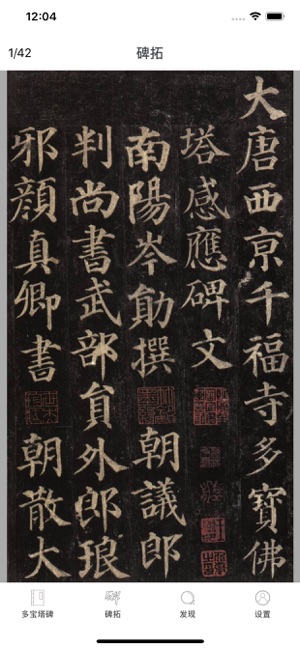 12:04
1/42
碑拓
大唐西亰千福寺多寶佛
塔感應碑文
南陽岑勛撰 朝議郎
判尚書武部貟外郎琅
邪顔真卿書 朝散大
多宝塔碑
碑拓
发现
设置